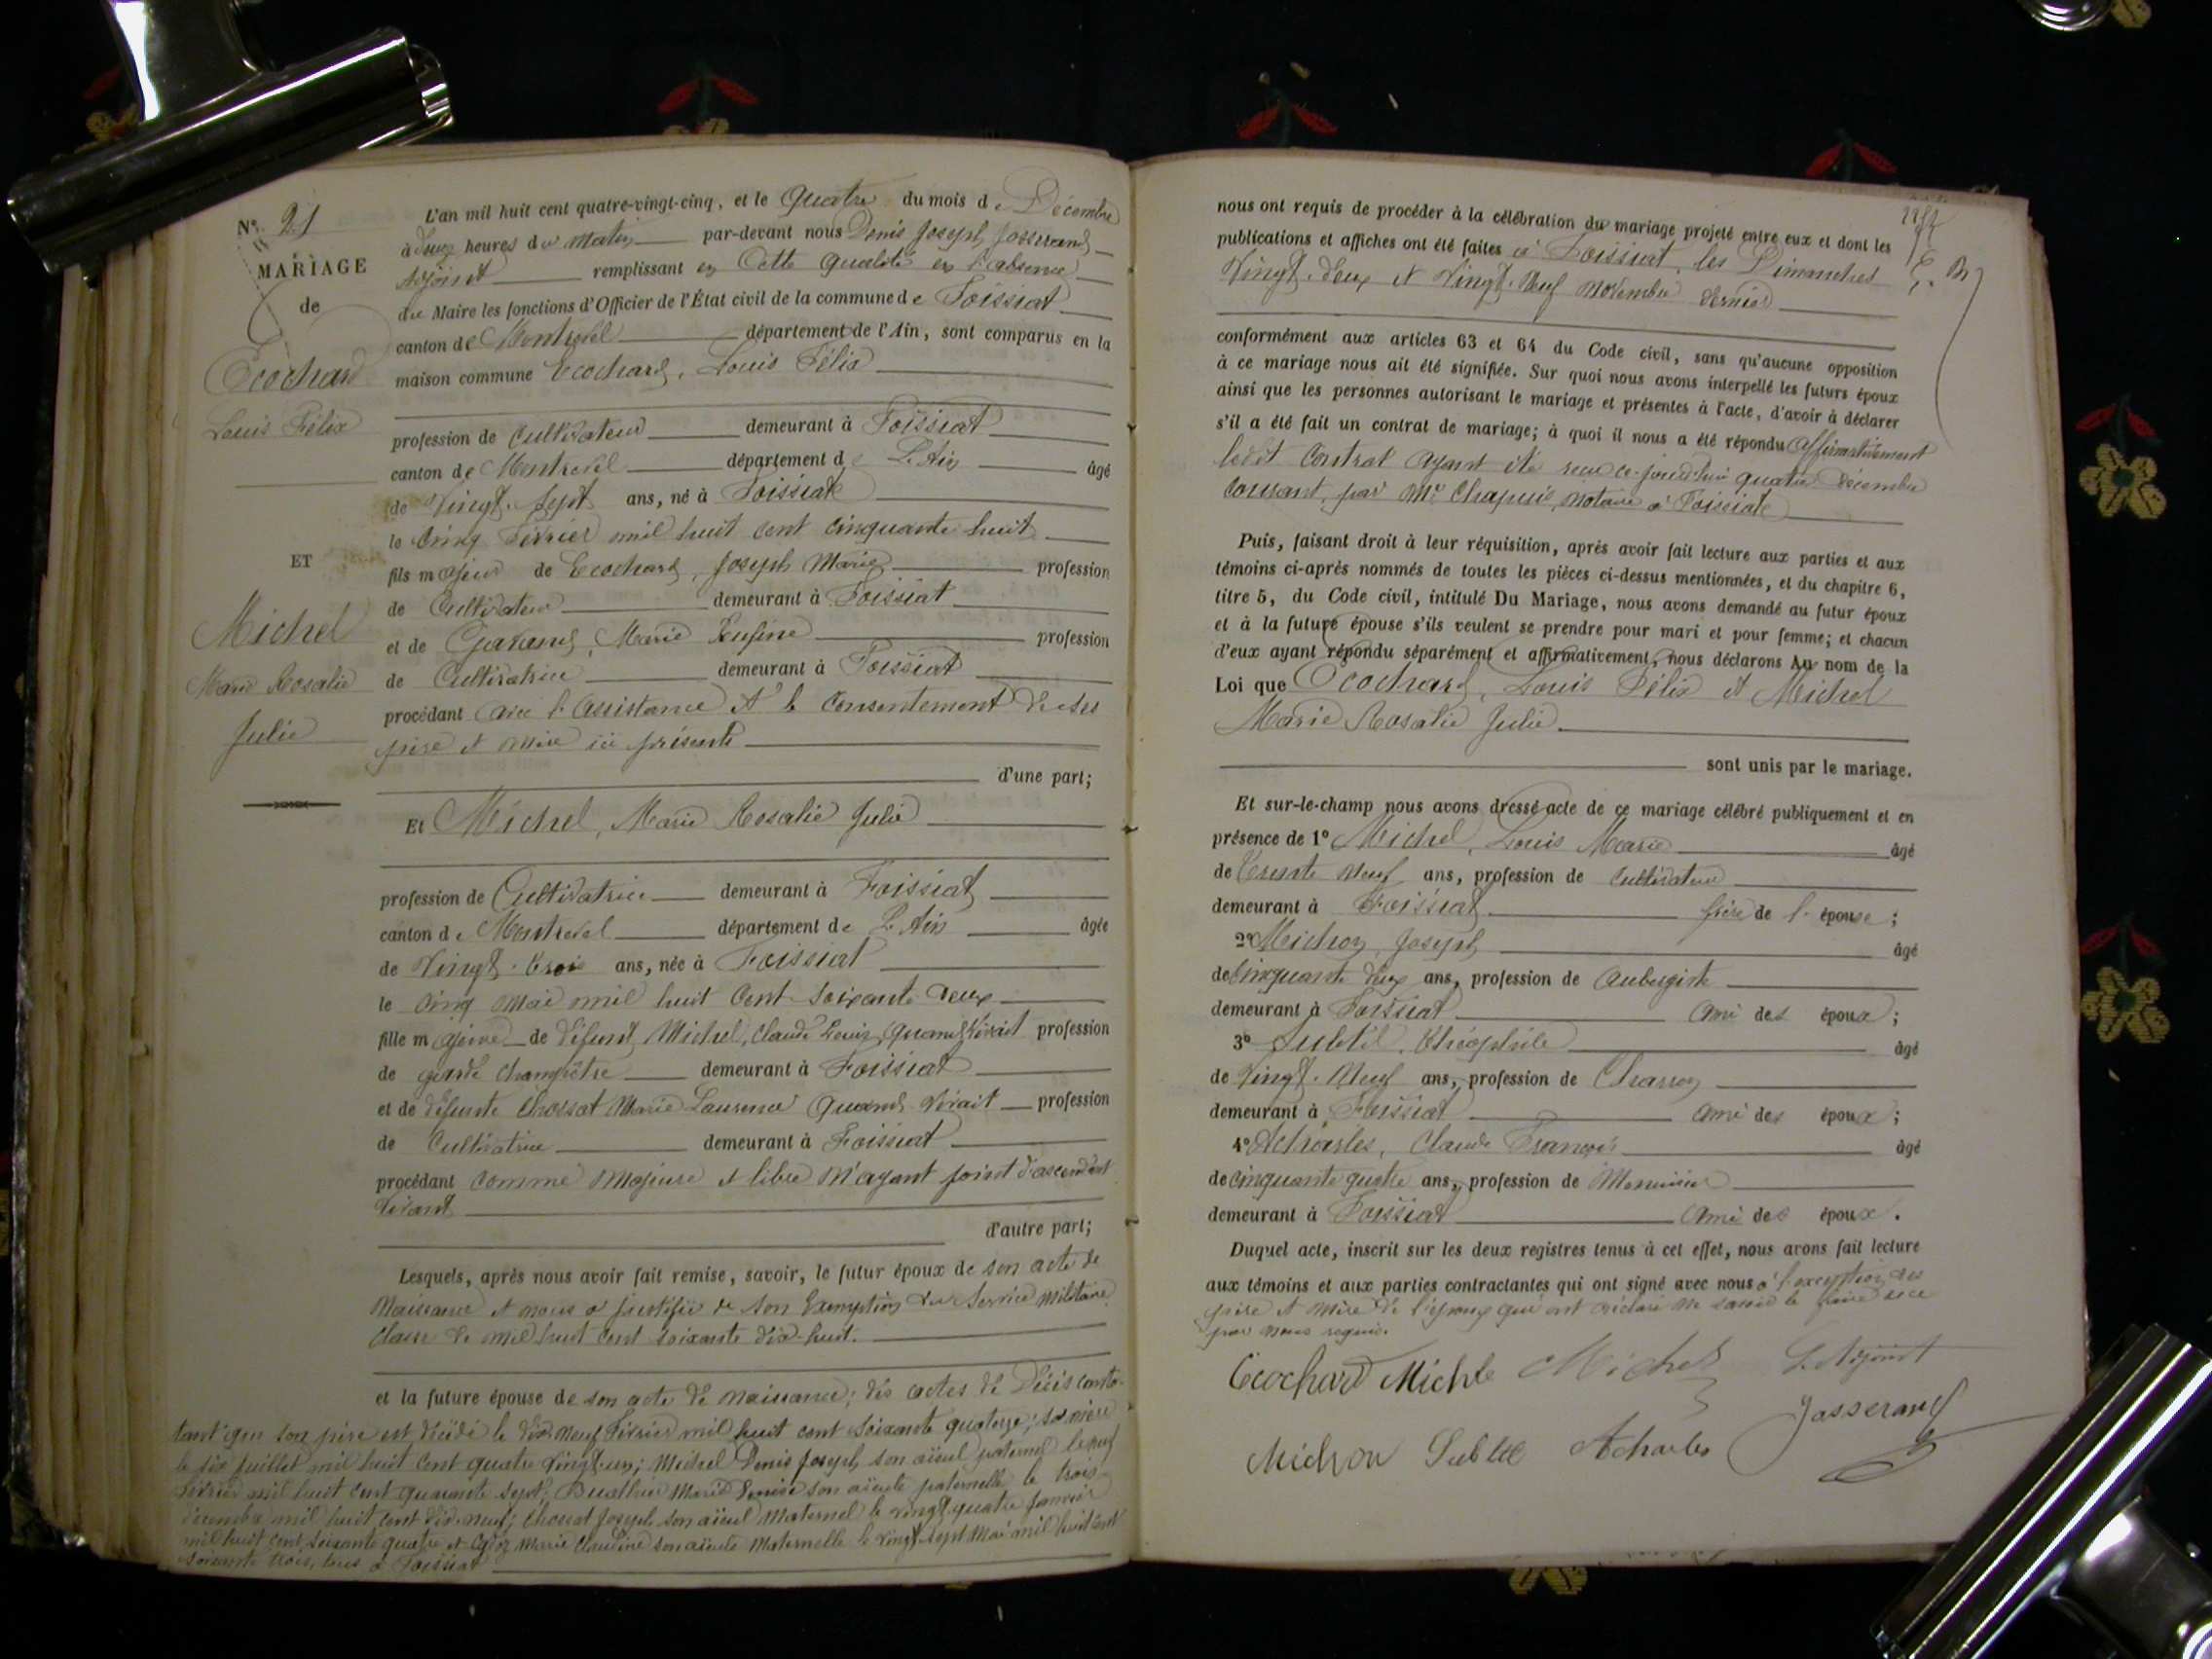 N° 21
MARIAGE
de
Ecochard
Louis Félix
ET
Michel
Marie Rosalie
Julie
L'an mil huit cent quatre-vingt-cinq, et le Quatre du mois de Décembre
à heures du Matin par-devant nous Denis Joseph Josserand
Adjoint remplissant en Cette qualité en l'absence
du Maire les fonctions d'Officier de l'État civil de la commune de Foissiat
canton de Montrevel département de l'Ain, sont comparus en la
maison commune Ecochard, Louis Félix
profession de Cultivateur demeurant à Foissiat
canton de Montrevel département de L'Ain âgé
de Vingt-Sept ans, né à Foissiat
le Cinq Février mil huit cent cinquante huit
fils majeur de Ecochard, Joseph Marie profession
de Cultivateur demeurant à Foissiat
et de Marie profession
de Cultivatrice demeurant à Foissiat
procédant avec l'assistance et le Consentement de ses
père et mère ici présents
d'une part;
Et Michel, Marie Rosalie Julie
profession de Cultivatrice demeurant à Foissiat
canton de Montrevel département de L'Ain âgée
de Vingt-trois ans, née à Foissiat
le cinq Mai mil huit Cent soixante deux
fille majeure de défunt Michel, Claude Louis, quand vivait profession
de garde Champêtre demeurant à Foissiat
et de défunte Chossat Marie Laurence quand vivait profession
de Cultivatrice demeurant à Foissiat
procédant comme Majeure et libre n'ayant point d'ascendant
vivant
d'autre part;
Lesquels, après nous avoir fait remise, savoir, le futur époux de son acte de
Naissance et nous a justifié de son Exemption du Service Militaire
Classe de mil huit cent soixante dix-huit.
et la future épouse de son acte de naissance; des actes de Décès consta-
tant que son père est décédé le dix neuf Février mil huit cent soixante quatorze; sa mère
le six juillet mil huit cent quatre vingt un; Michel Denis Joseph son aïeul paternel le neuf
Février mil huit cent quarante sept; Marie Denise son aïeule paternelle le trois
décembre mil huit cent dix-neuf; Chossat Joseph son aïeul Maternel le vingt quatre Janvier
mil huit cent soixante quatre et Marie Claudine son aïeule Maternelle le vingt sept Mai mil huit cent
soixante trois, tous à Foissiat
nous ont requis de procéder à la célébration du mariage projeté entre eux et dont les
publications et affiches ont été faites à Foissiat, les Dimanches
Vingt-deux et Vingt-Neuf Novembre dernier
conformément aux articles 63 et 64 du Code civil, sans qu'aucune opposition
à ce mariage nous ait été signifiée. Sur quoi nous avons interpellé les futurs époux
ainsi que les personnes autorisant le mariage et présentes à l'acte, d'avoir à déclarer
s'il a été fait un contrat de mariage; à quoi il nous a été répondu affirmativement
ledit Contrat ayant été reçu ce-jourd'hui quatre décembre
courant, par Me Chapuis, notaire à Foissiat
Puis, faisant droit à leur réquisition, après avoir fait lecture aux parties et aux
témoins ci-après nommés de toutes les pièces ci-dessus mentionnées, et du chapitre 6,
titre 5, du Code civil, intitulé Du Mariage, nous avons demandé au futur époux
et à la future épouse s'ils veulent se prendre pour mari et pour femme; et chacun
d'eux ayant répondu séparément et affirmativement, nous déclarons Au nom de la
Loi que Ecochard, Louis Félix et Michel
Marie Rosalie Julie
sont unis par le mariage.
Et sur-le-champ nous avons dressé acte de ce mariage célébré publiquement et en
présence de 1° Michel, Louis Marie âgé
de trente Neuf ans, profession de Cultivateur
demeurant à Foissiat frère de l'épouse;
2° Michon Joseph âgé
de Cinquante deux ans, profession de Aubergiste
demeurant à Foissiat Ami des époux;
3° Subtil, Théophile âgé
de Vingt-Neuf ans, profession de Charron
demeurant à Foissiat Ami des époux;
4° Acharles, Claude François âgé
de cinquante quatre ans, profession de Menuisier
demeurant à Foissiat Ami des époux.
Duquel acte, inscrit sur les deux registres tenus à cet effet, nous avons fait lecture
aux témoins et aux parties contractantes qui ont signé avec nous à l'exception des
père et mère de l'époux qui ont déclaré ne savoir le faire de ce
par nous requis.
Ecochard Michel Michel L'Adjoint
Josserand
Michon Subtil Acharles